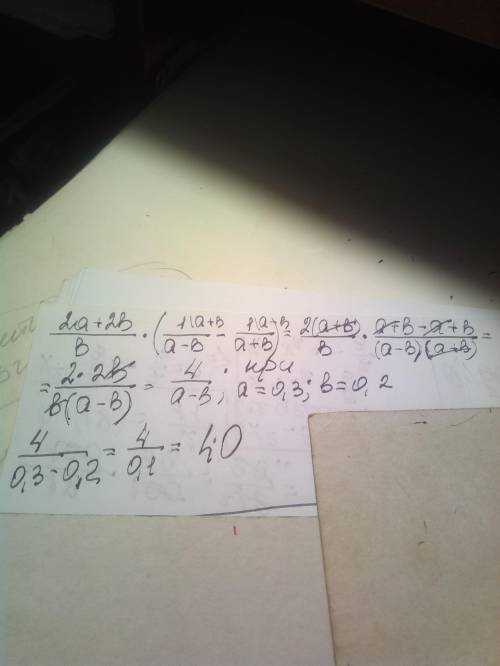 (2a+2b)/b · (1\a+b/(a-b) - 1\a+b/(a+b)) = 2(a+b)/b · (a+b-a+b)/((a-b)(a+b)) =
= 2·2b/(b(a-b)) = 4/(a-b); при a=0,3; b=0,2
4/(0,3-0,2) = 4/0,1 = 40